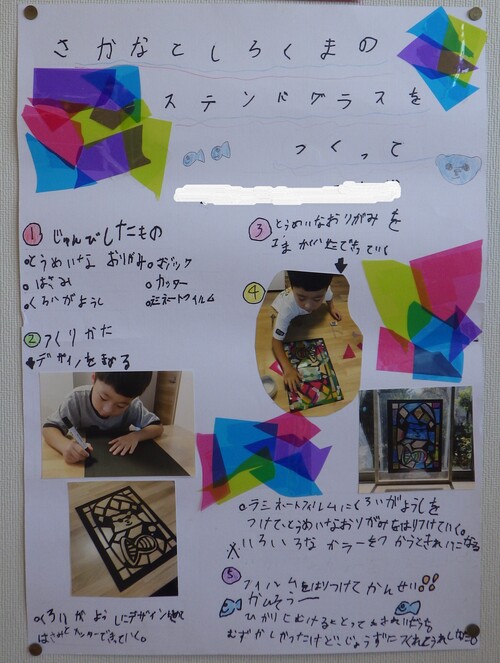 さかなとしろくまの
ステンドグラスを
つくって
① じゅんびしたもの
○とうめいな おりがみ ○マジック
○はさみ ○カッター
○くろいがようし ○ラミネートフィルム
② つくりかた
デザインをきめる
○くろい がようしにデザイン
はさみとカッターできっていく。
③ とうめいなおりがみを
④
○ラミネートフィルムにくろいがようしを
つけて、とうめいなおりがみをはりつけていく。
※いろいろなカラーをつかうときれいになる
⑤ フィルムをはりつけて かんせい!!
かんそう
ひかりにむけるととってもきれいだった
むずかしかったけど、じょうずに